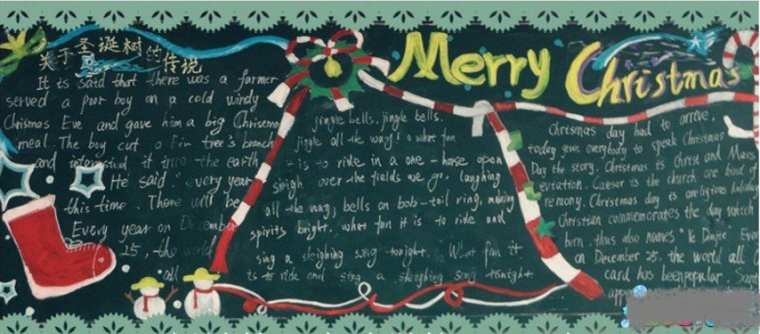 关于圣诞树的传说
It is said that there was a farmer
served a poor boy on a cold windy
Chrismas Eve and gave him a big Chrisemas
meal. The boy cut a Fir tree's branch
and it into the earth
He said "every year
this time. There will be
Every year on December
25, the world
all
jingle bells, jingle bells.
jingle all the way! o what fun
is to ride in a one-horse open
sleigh over the fields we go, laughing
all the way, bells on bob-tail ring, making
spirits bright. what fun it is to ride and
sing a sleighing song tonight. What fun it
is to ride and sing a sleighing song tonight
Merry Christmas
Christmas day had to arrive,
today give everybody to speak Christmas
Day the story. Christmas is Christ and Mass
Caesar is the church are kind of
remony. Christmas day is an religious holiday
Christian commemorates the day which
born, thus also names "
on December 25, the world all
card has been popular.